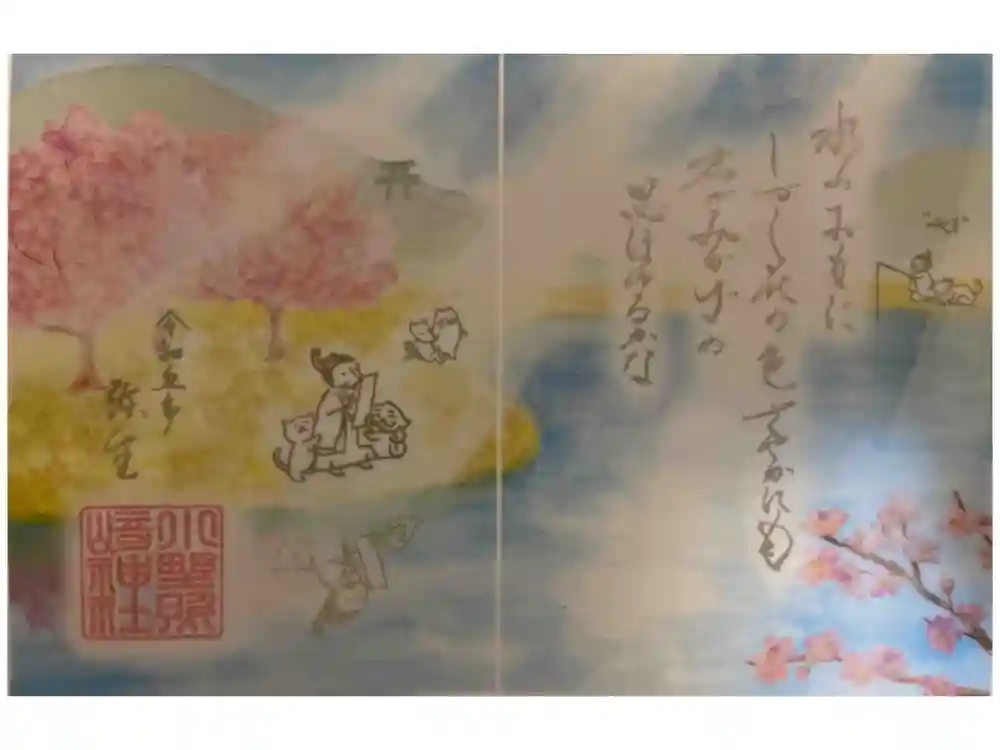 水のおもに
しづく花の色 さやかにも
君がみかげの
思ほゆるかな
令和五年
弥生
小野照
崎神社